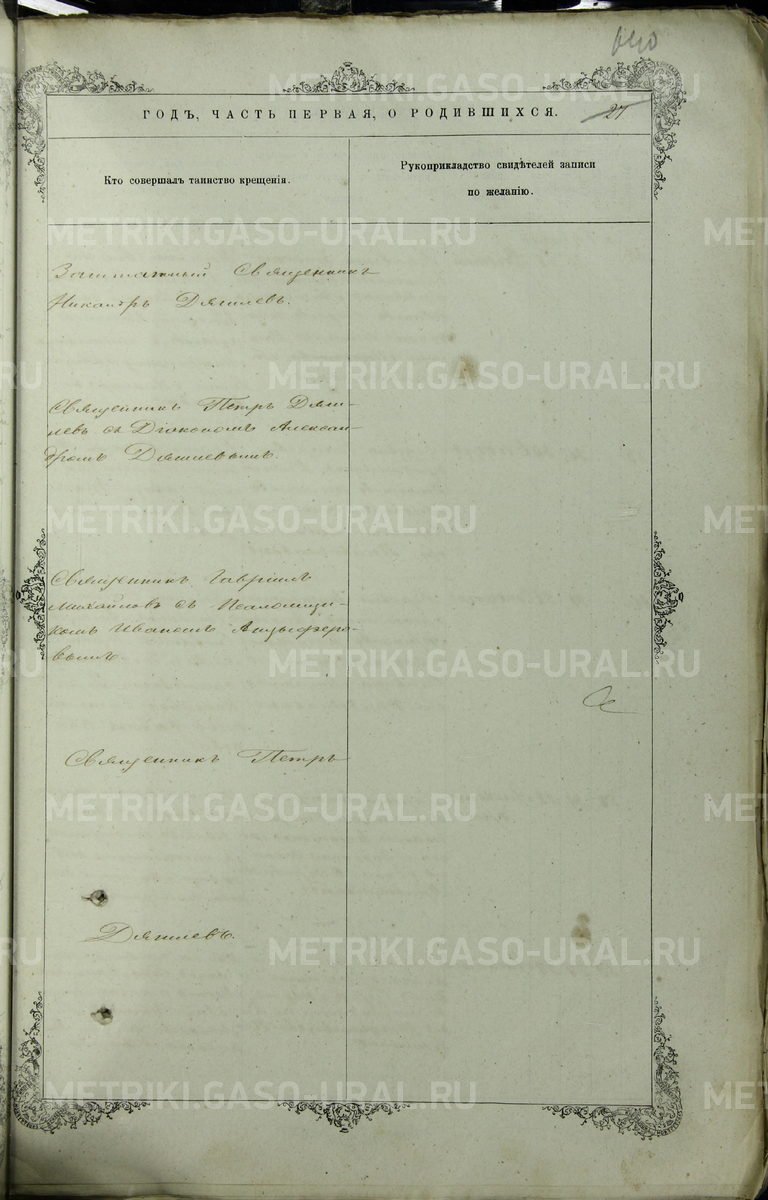 640
ГОДЪ, ЧАСТЬ ПЕРВАЯ, О РОДИВШИХСЯ.
27
Кто совершалъ таинство крещенія.
Рукоприкладство свидѣтелей записи
по желанію.
Заштатный Священникъ
Никандръ Дягилевъ.
Священникъ Петръ Дяги-
левъ съ Діакономъ Алексан-
дромъ Дягилевымъ.
Священникъ Гавріилъ
Михайловъ съ Псаломщи-
комъ Иваномъ Анцыферо-
вымъ.
Священникъ Петръ
Дягилевъ.
METRIKI.GASO-URAL.RU